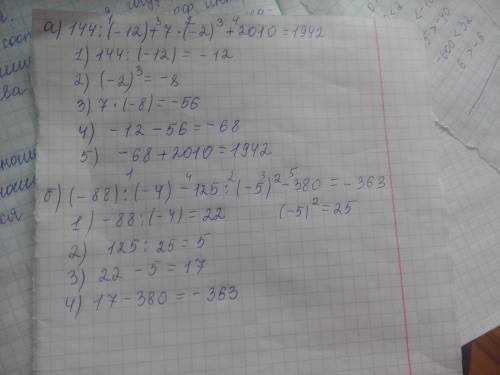 а) 144 : (-12) + 7 · (-2)³ + 2010 = 1942
1) 144 : (-12) = -12
2) (-2)³ = -8
3) 7 · (-8) = -56
4) -12 - 56 = -68
5) -68 + 2010 = 1942
б) (-88) : (-4) - 125 : (-5)² - 380 = -363
1) -88 : (-4) = 22 (-5)² = 25
2) 125 : 25 = 5
3) 22 - 5 = 17
4) 17 - 380 = -363